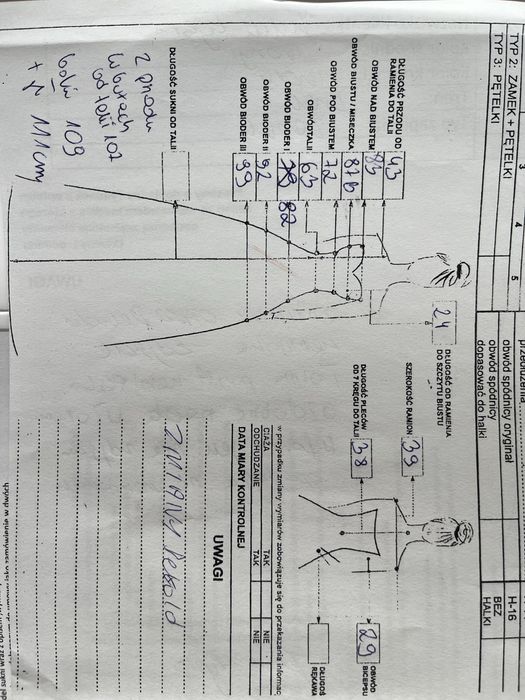 3 4 5
TYP 2: ZAMEK + PĘTELKI
TYP 3: PĘTELKI
obwód spódnicy oryginał H-16
obwód spódnicy dopasować do halki BEZ HALKI
DŁUGOŚĆ PRZODU OD RAMIENIA DO TALII 43
OBWÓD NAD BIUSTEM 83
OBWÓD BIUSTU / MISECZKA 87B
OBWÓD POD BIUSTEM 72
OBWÓD TALII 63
OBWÓD BIODER I 82
OBWÓD BIODER II 92
OBWÓD BIODER III 99
DŁUGOŚĆ SUKNI OD TALII
z przodu
w butach
od talii 107
boki 109
+ 11cm
24
DŁUGOŚĆ OD RAMIENIA
DO SZCZYTU BIUSTU
SZEROKOŚĆ RAMION 39
DŁUGOŚĆ PLECÓW
OD 7 KRĘGU DO TALII 38
29 OBWÓD BICEPSU
w przypadku zmiany wymiarów zobowiązuje się do przekazania informac
CIĄŻA TAK NIE
ODCHUDZANIE TAK NIE
DATA MIARY KONTROLNEJ
UWAGI
ZMIANY